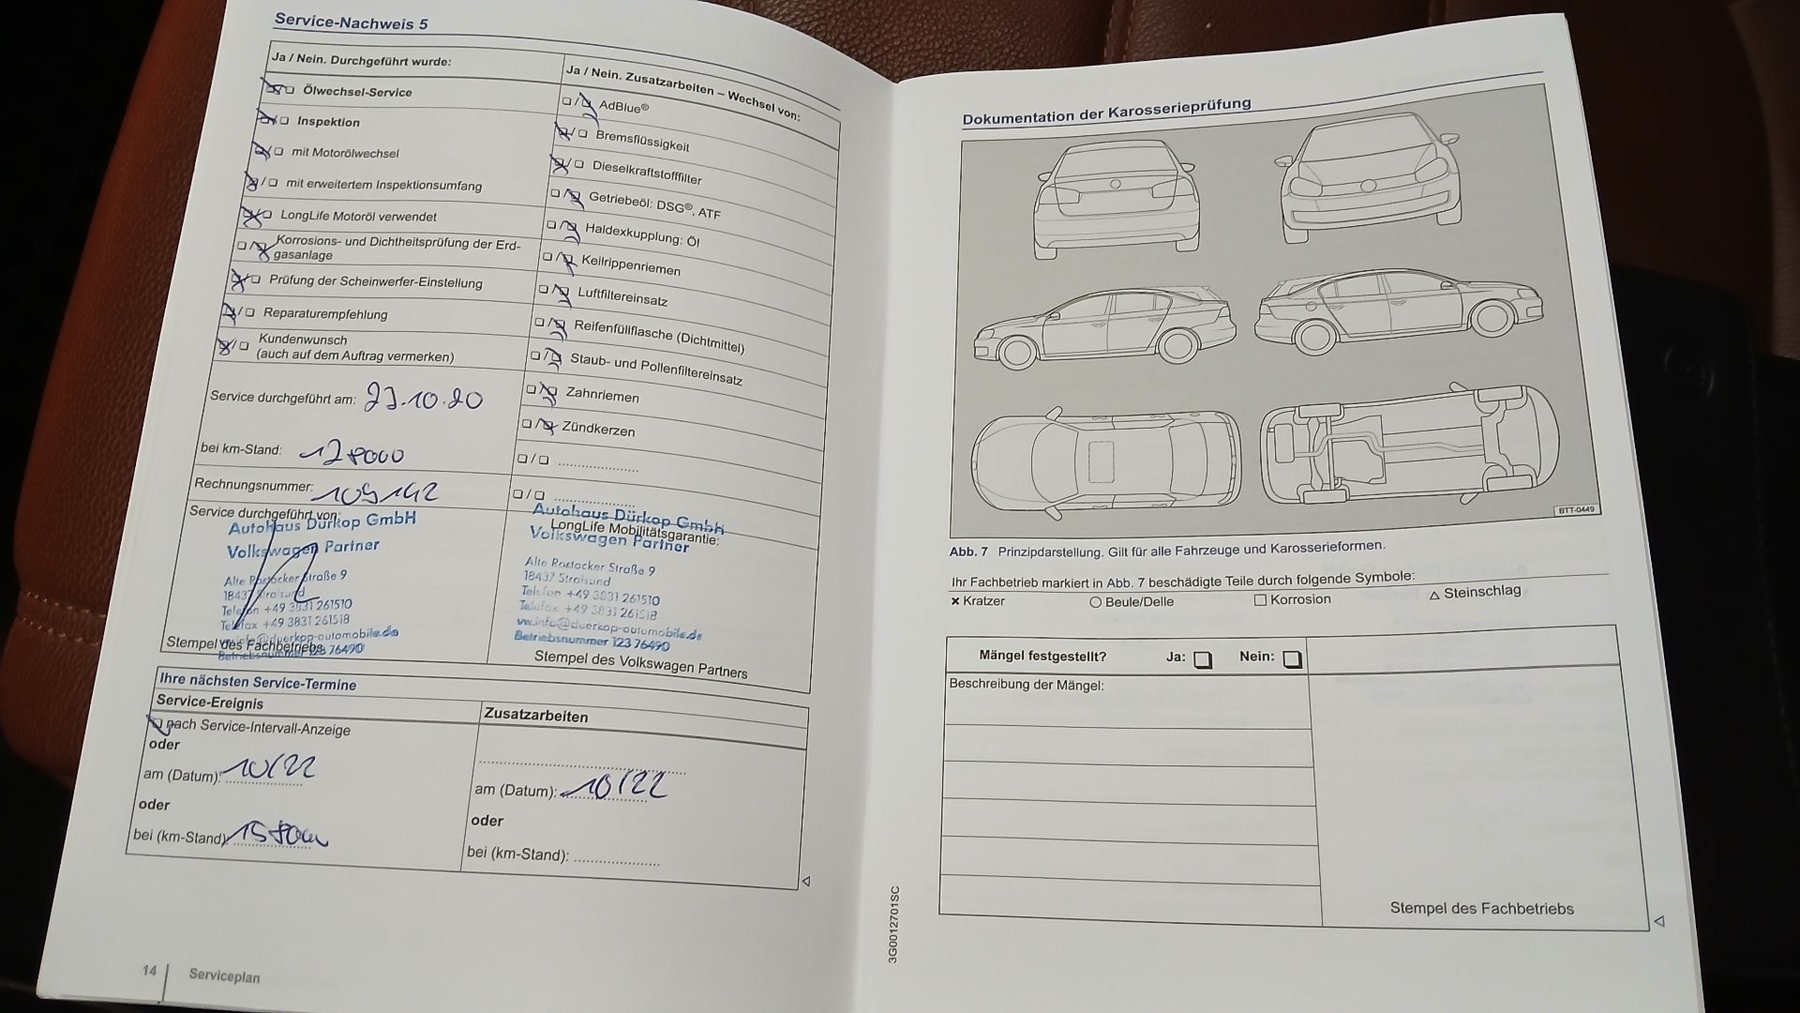 Service-Nachweis 5
Ja / Nein. Durchgeführt wurde:
Ölwechsel-Service
Inspektion
mit Motorölwechsel
mit erweitertem Inspektionsumfang
LongLife Motoröl verwendet
Korrosions- und Dichtheitsprüfung der Erd-
gasanlage
Prüfung der Scheinwerfer-Einstellung
Reparaturempfehlung
Kundenwunsch
(auch auf dem Auftrag vermerken)
Service durchgeführt am: 23.10.20
bei km-Stand: 128000
Rechnungsnummer: 109142
Service durchgeführt von:
Autohaus Dürkop GmbH
Volkswagen Partner
Alte Rostocker Straße 9
18437 Stralsund
Telefon +49 3831 261510
Telefax +49 3831 261518
vw.info@duerkop-automobile.de
Betriebsnummer 123 76490
Stempel des Fachbetriebs
Ja / Nein. Zusatzarbeiten – Wechsel von:
AdBlue®
Bremsflüssigkeit
Dieselkraftstofffilter
Getriebeöl: DSG®, ATF
Haldexkupplung: Öl
Keilrippenriemen
Luftfiltereinsatz
Reifenfüllflasche (Dichtmittel)
Staub- und Pollenfiltereinsatz
Zahnriemen
Zündkerzen
Autohaus Dürkop GmbH
LongLife Mobilitätsgarantie:
Volkswagen Partner
Alte Rostocker Straße 9
18437 Stralsund
Telefon +49 3831 261510
Telefax +49 3831 261518
vw.info@duerkop-automobile.de
Betriebsnummer 123 76490
Stempel des Volkswagen Partners
Ihre nächsten Service-Termine
Service-Ereignis
nach Service-Intervall-Anzeige
oder
am (Datum): 10/22
oder
bei (km-Stand): 158000
Zusatzarbeiten
am (Datum): 10/22
oder
bei (km-Stand):
14 Serviceplan
Dokumentation der Karosserieprüfung
BTT-0449
Abb. 7 Prinzipdarstellung. Gilt für alle Fahrzeuge und Karosserieformen.
Ihr Fachbetrieb markiert in Abb. 7 beschädigte Teile durch folgende Symbole:
× Kratzer ○ Beule/Delle □ Korrosion △ Steinschlag
Mängel festgestellt? Ja: Nein:
Beschreibung der Mängel:
Stempel des Fachbetriebs
3G0012701SC